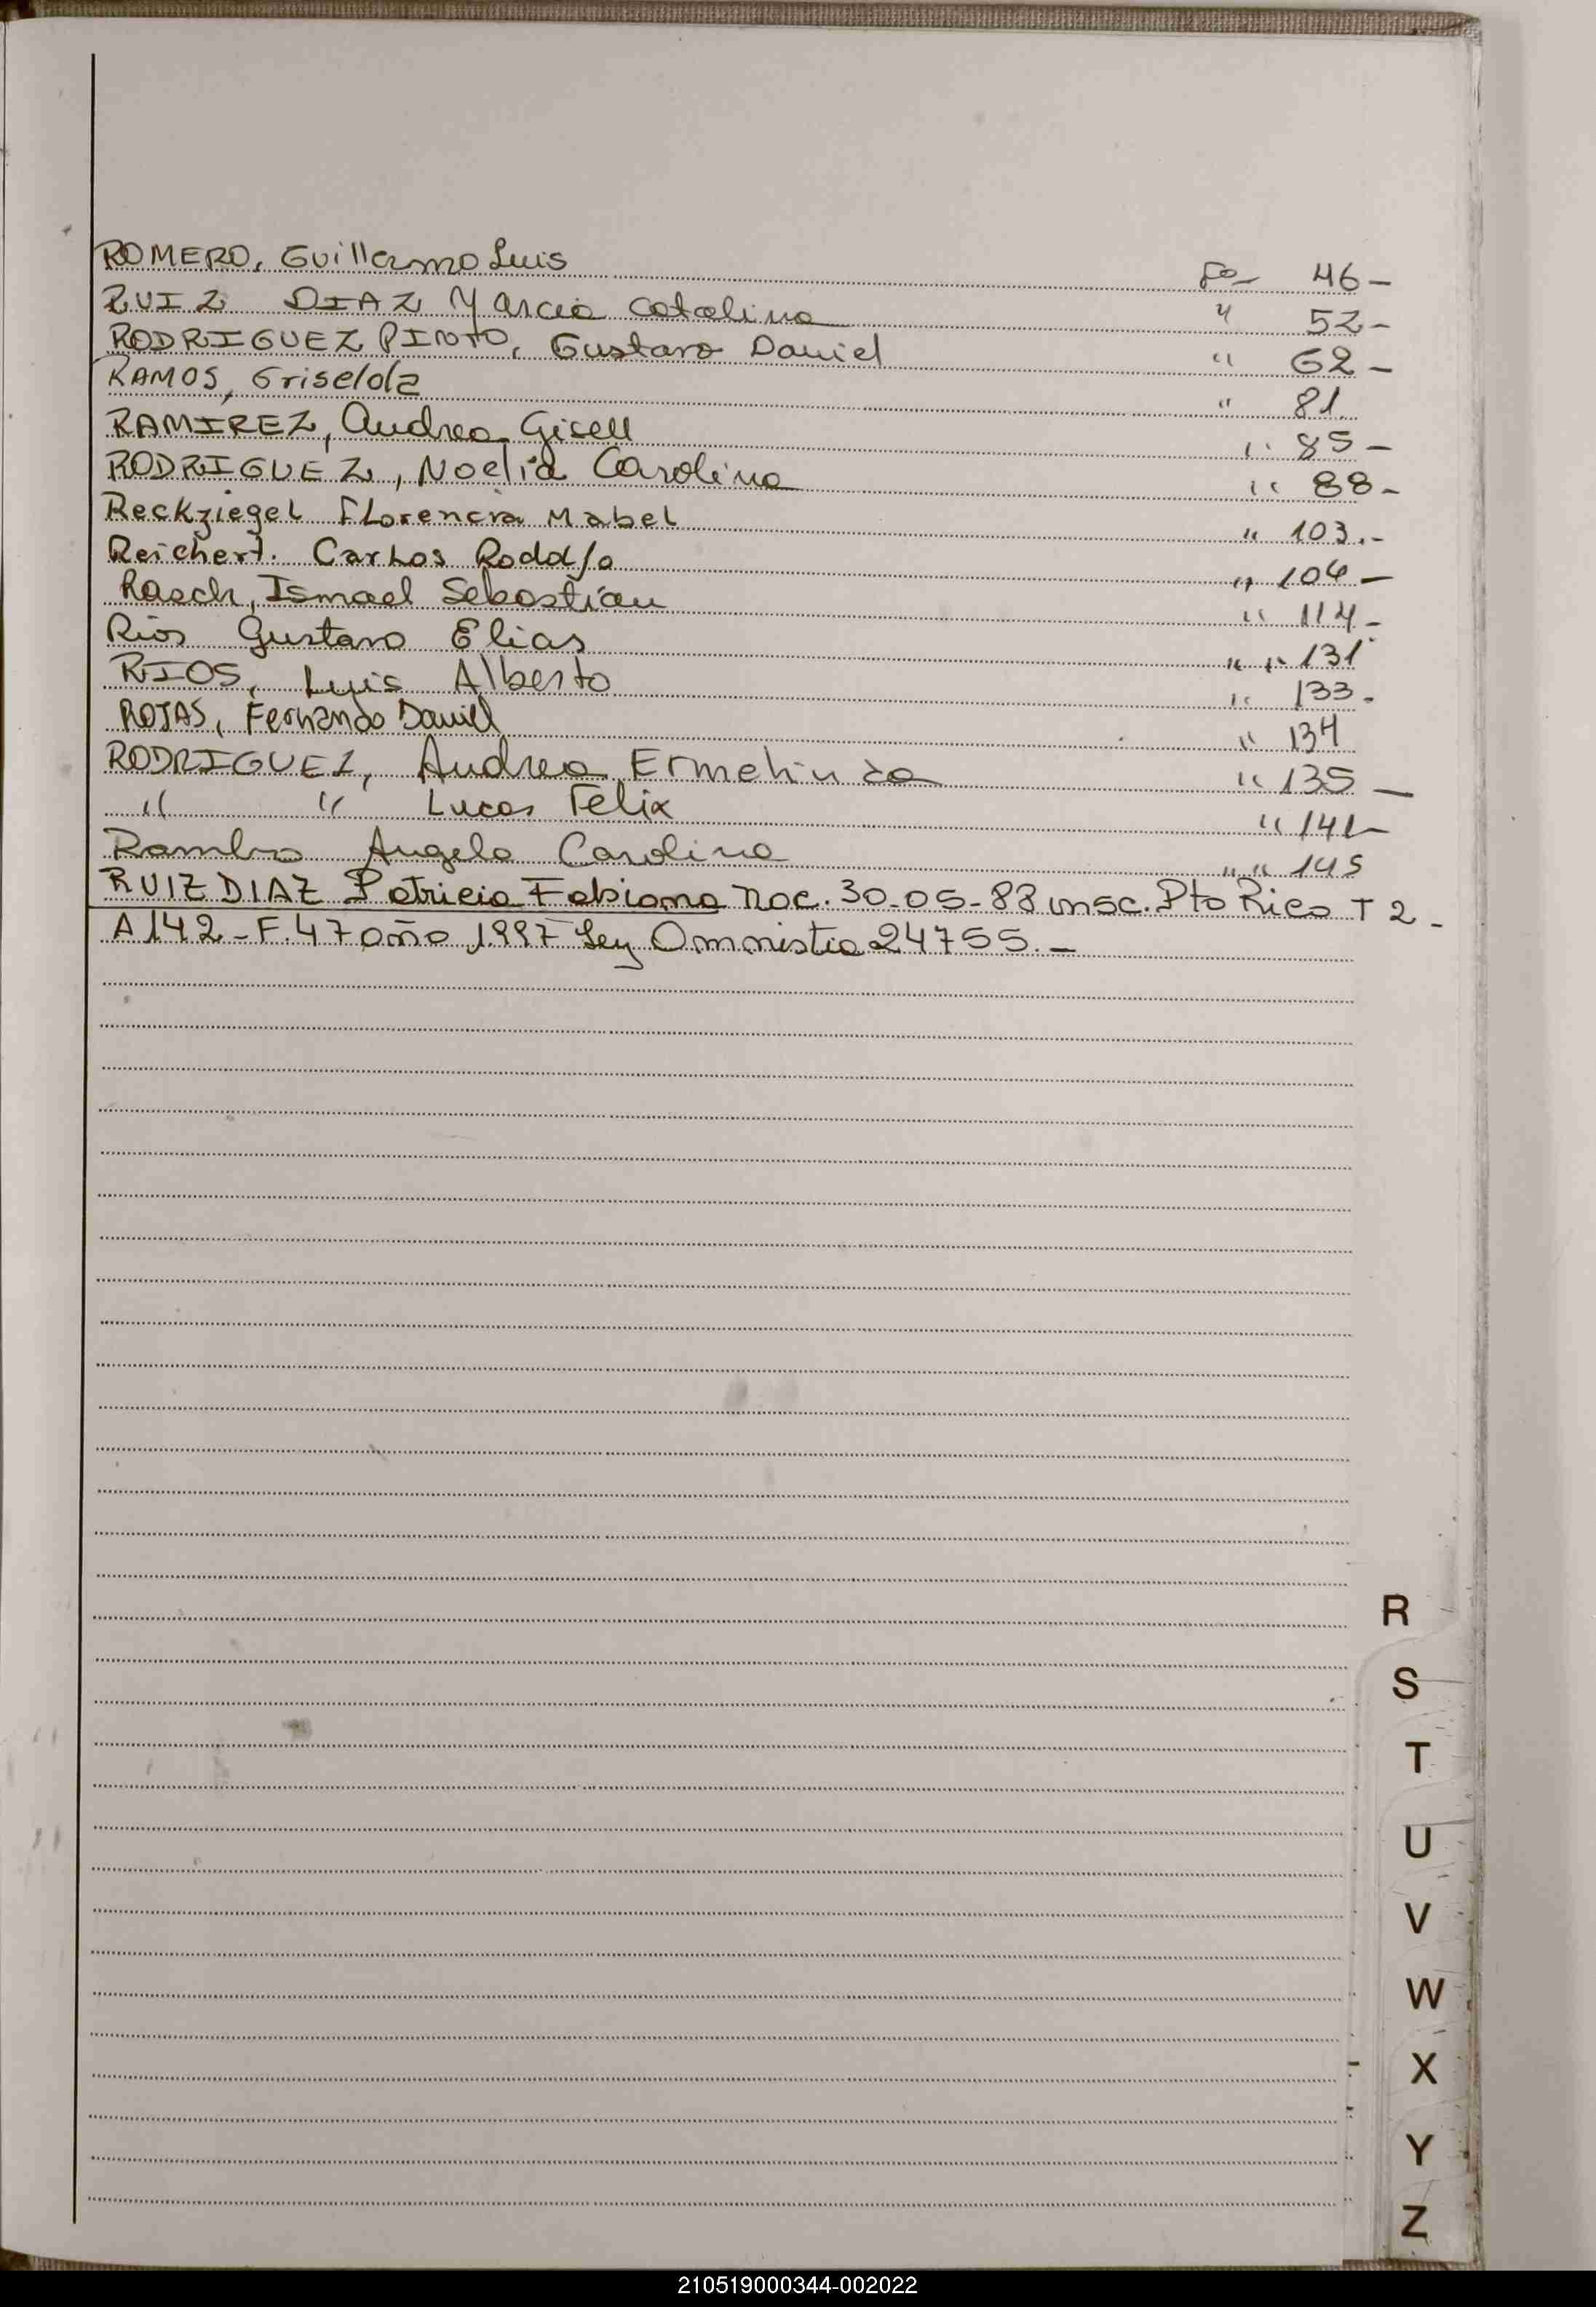 ROMERO, Guillermo Luis Fo- 46-
RUIZ DIAZ Marcia Catalina " 52-
RODRIGUEZ PINTO, Gustavo Daniel " 62-
RAMOS, Griselda " 81.
RAMIREZ, Andrea Gisell " 85-
RODRIGUEZ, Noelia Carolina " 88-
Reckziegel Florencia Mabel " 103.-
Reichert. Carlos Rodolfo " 106-
Rasch, Ismael Sebastian " 114-
Rios Gustavo Elias " " 131
RIOS, Luis Alberto " 133-
ROJAS, Fernando Daniel " 134
RODRIGUEZ, Andrea Ermelinda " 135-
" " Lucas Felix " 141-
Rambo Angela Carolina " " 145
RUIZ DIAZ Patricia Fabiana nac. 30-05-88 insc. Pto Rico T 2-
A 142-F. 47 año 1997 Ley Amnistia 24755.-
R
S
T
U
V
W
X
Y
Z
210519000344-002022